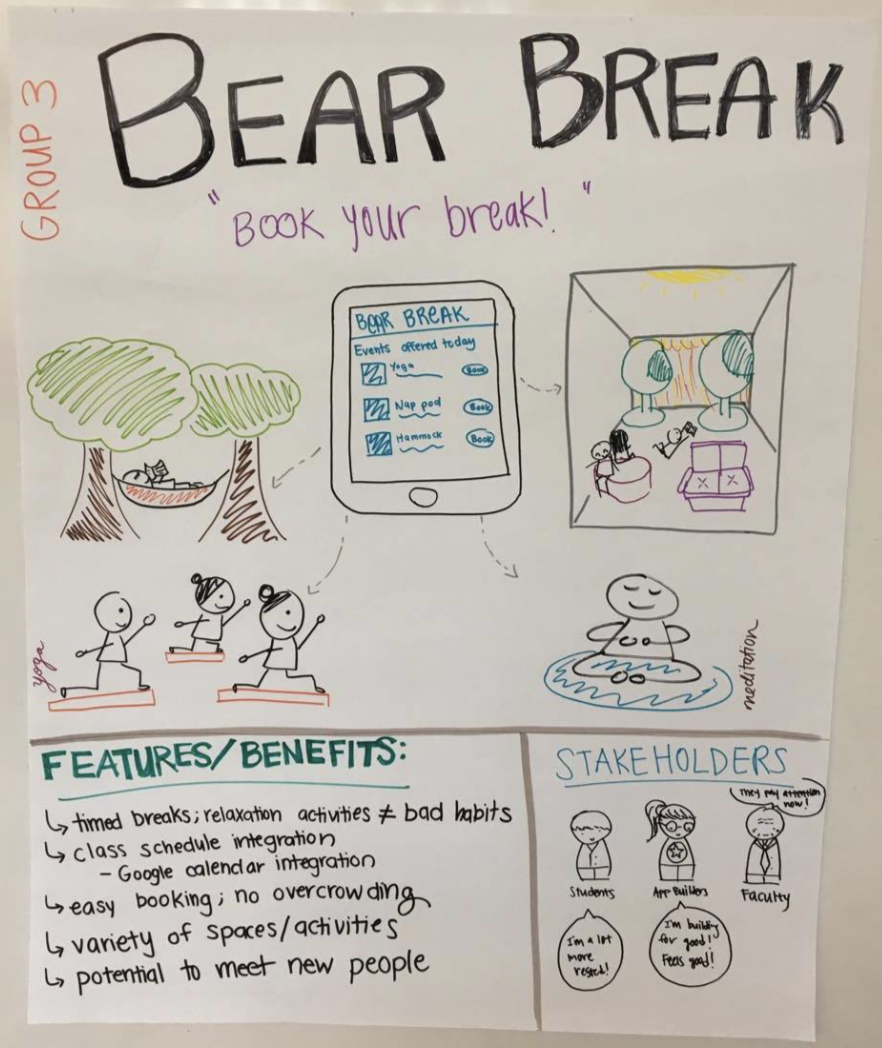 GROUP 3
BEAR BREAK
"Book your break!"
BEAR BREAK
Events offered today
Yoga Book
Nap pod Book
Hammock Book
yoga
meditation
FEATURES/BENEFITS:
↳ timed breaks; relaxation activities ≠ bad habits
↳ class schedule integration
– Google calendar integration
↳ easy booking; no overcrowding
↳ variety of spaces/activities
↳ potential to meet new people
STAKEHOLDERS
They pay attention
now!
Students
App Builders
Faculty
I'm a lot
more
rested!
I'm building
for good!
Feels good!